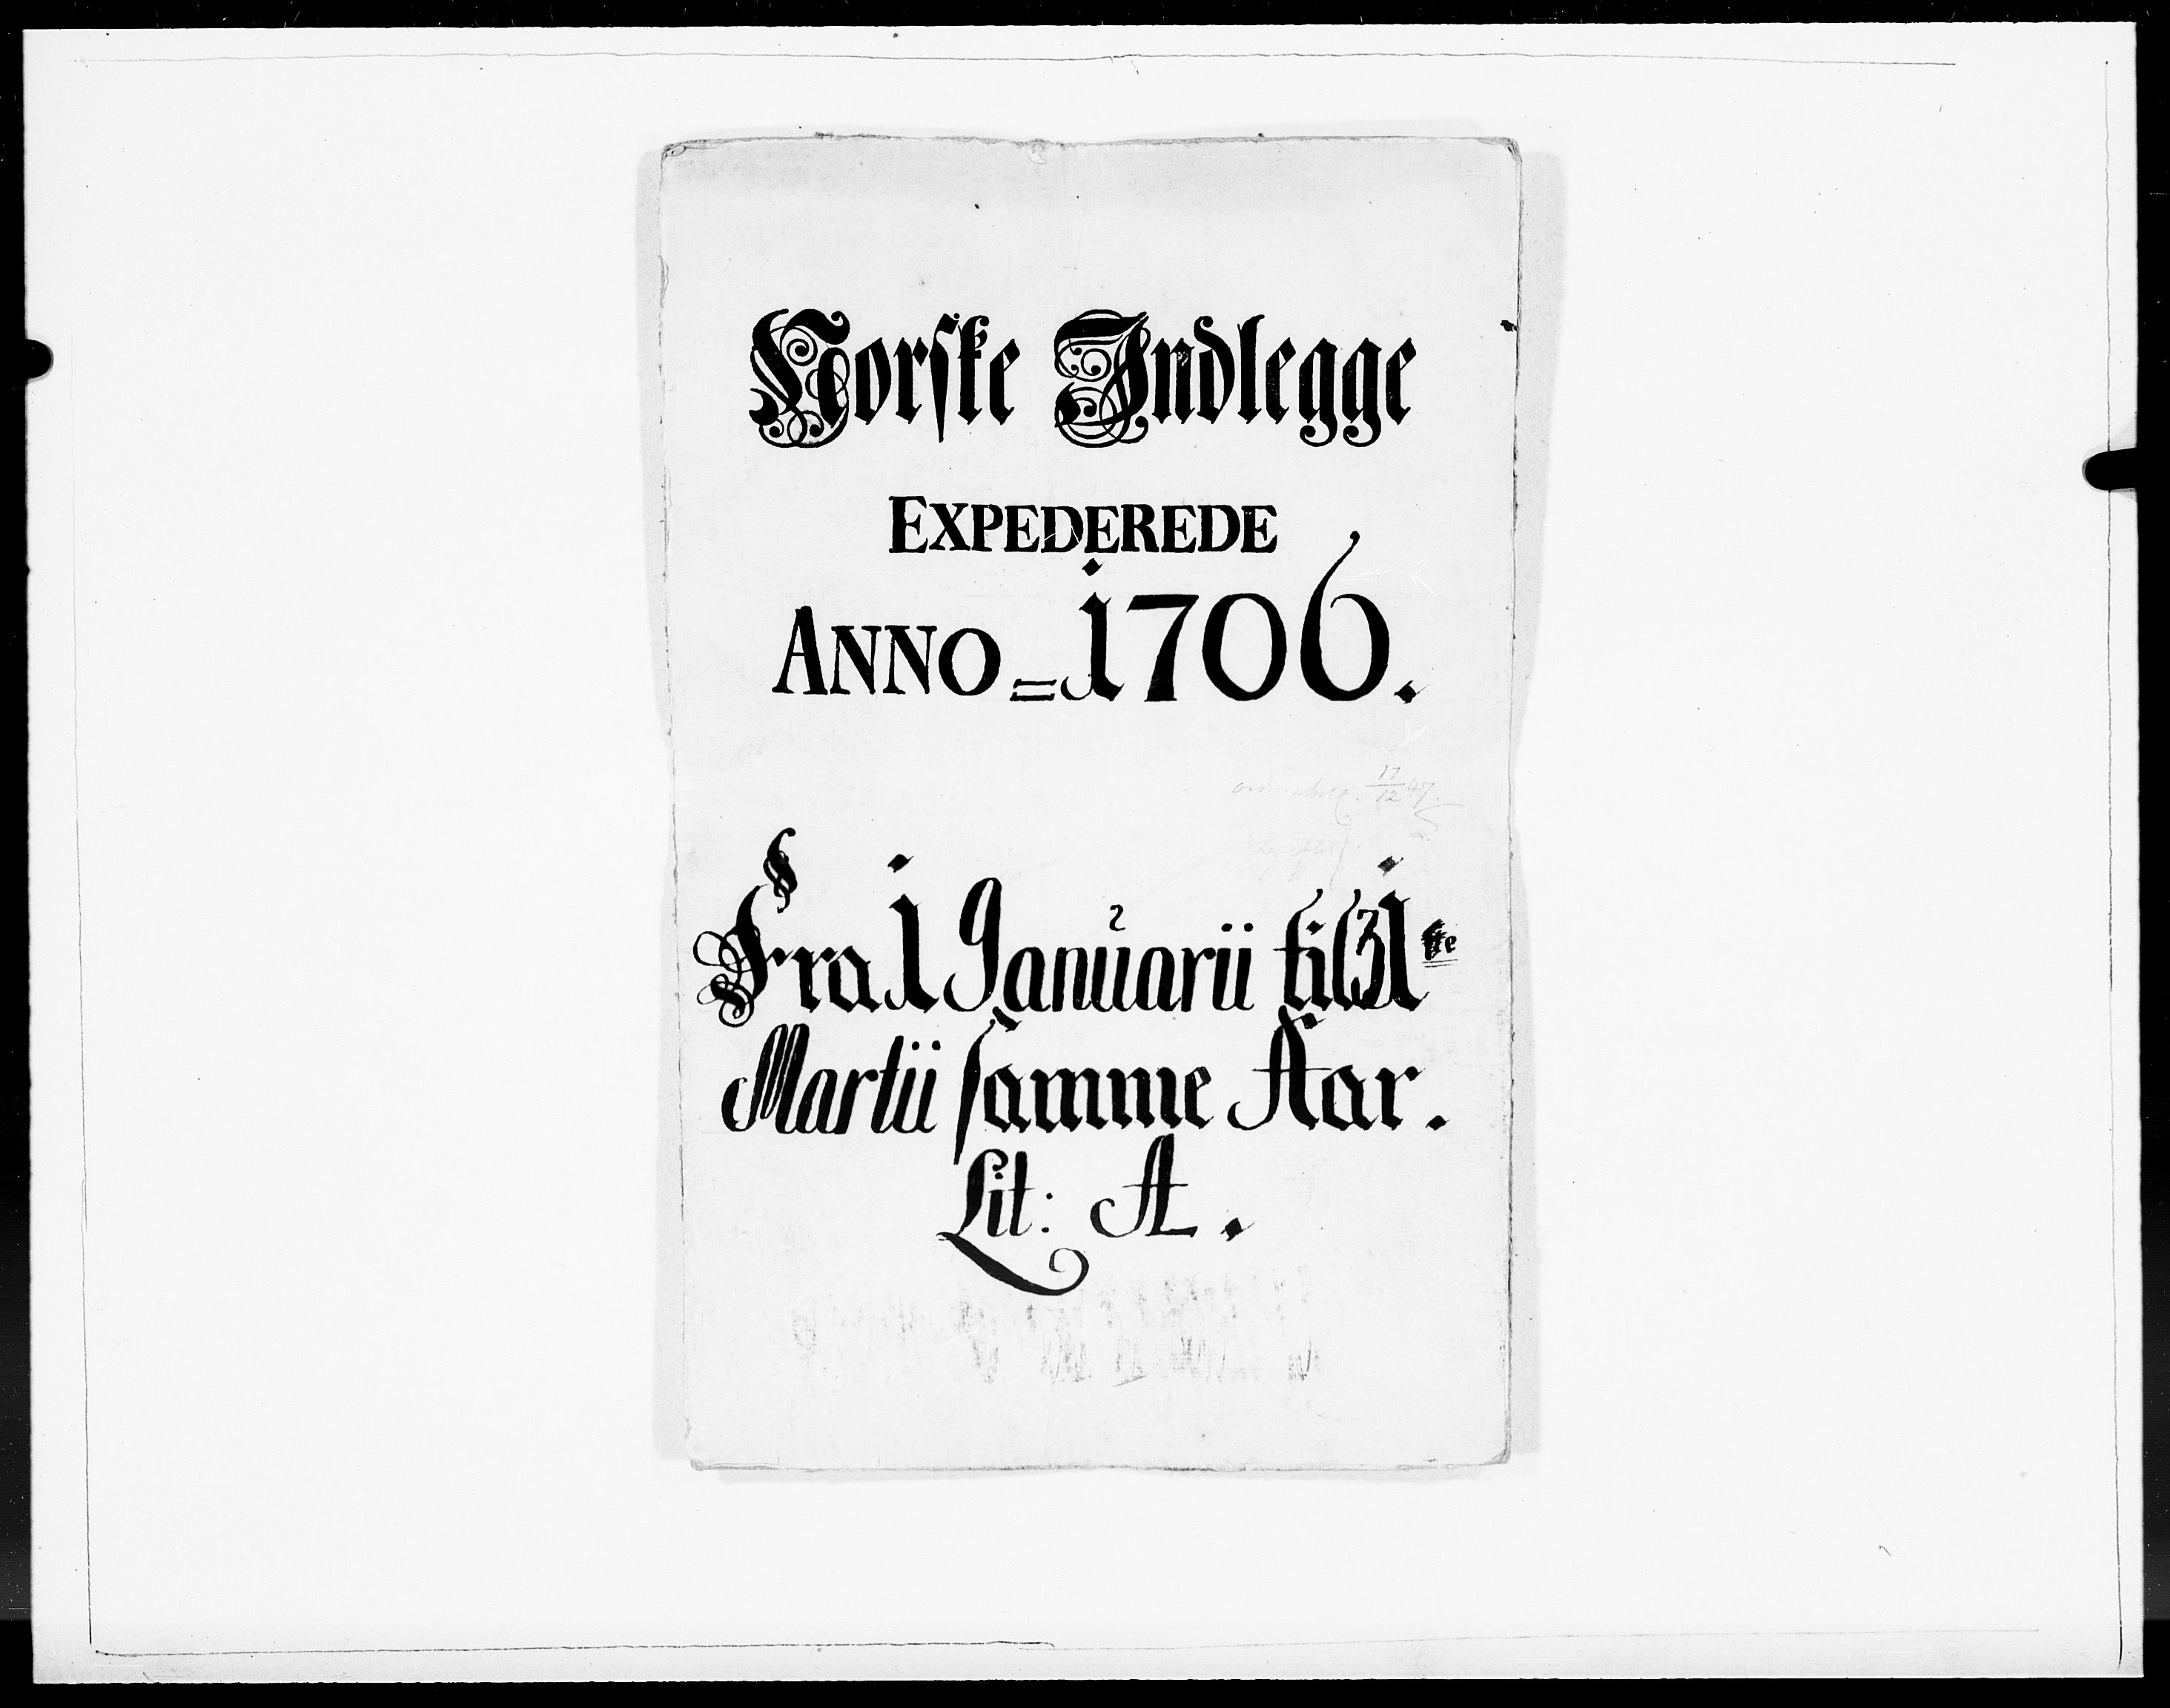 Norske Indlegge
EXPEDEREDE
ANNO = 1706.
17/12 47.
Fra 1 Januarii til 31 te
Martii samme Aar.
Lit: A.